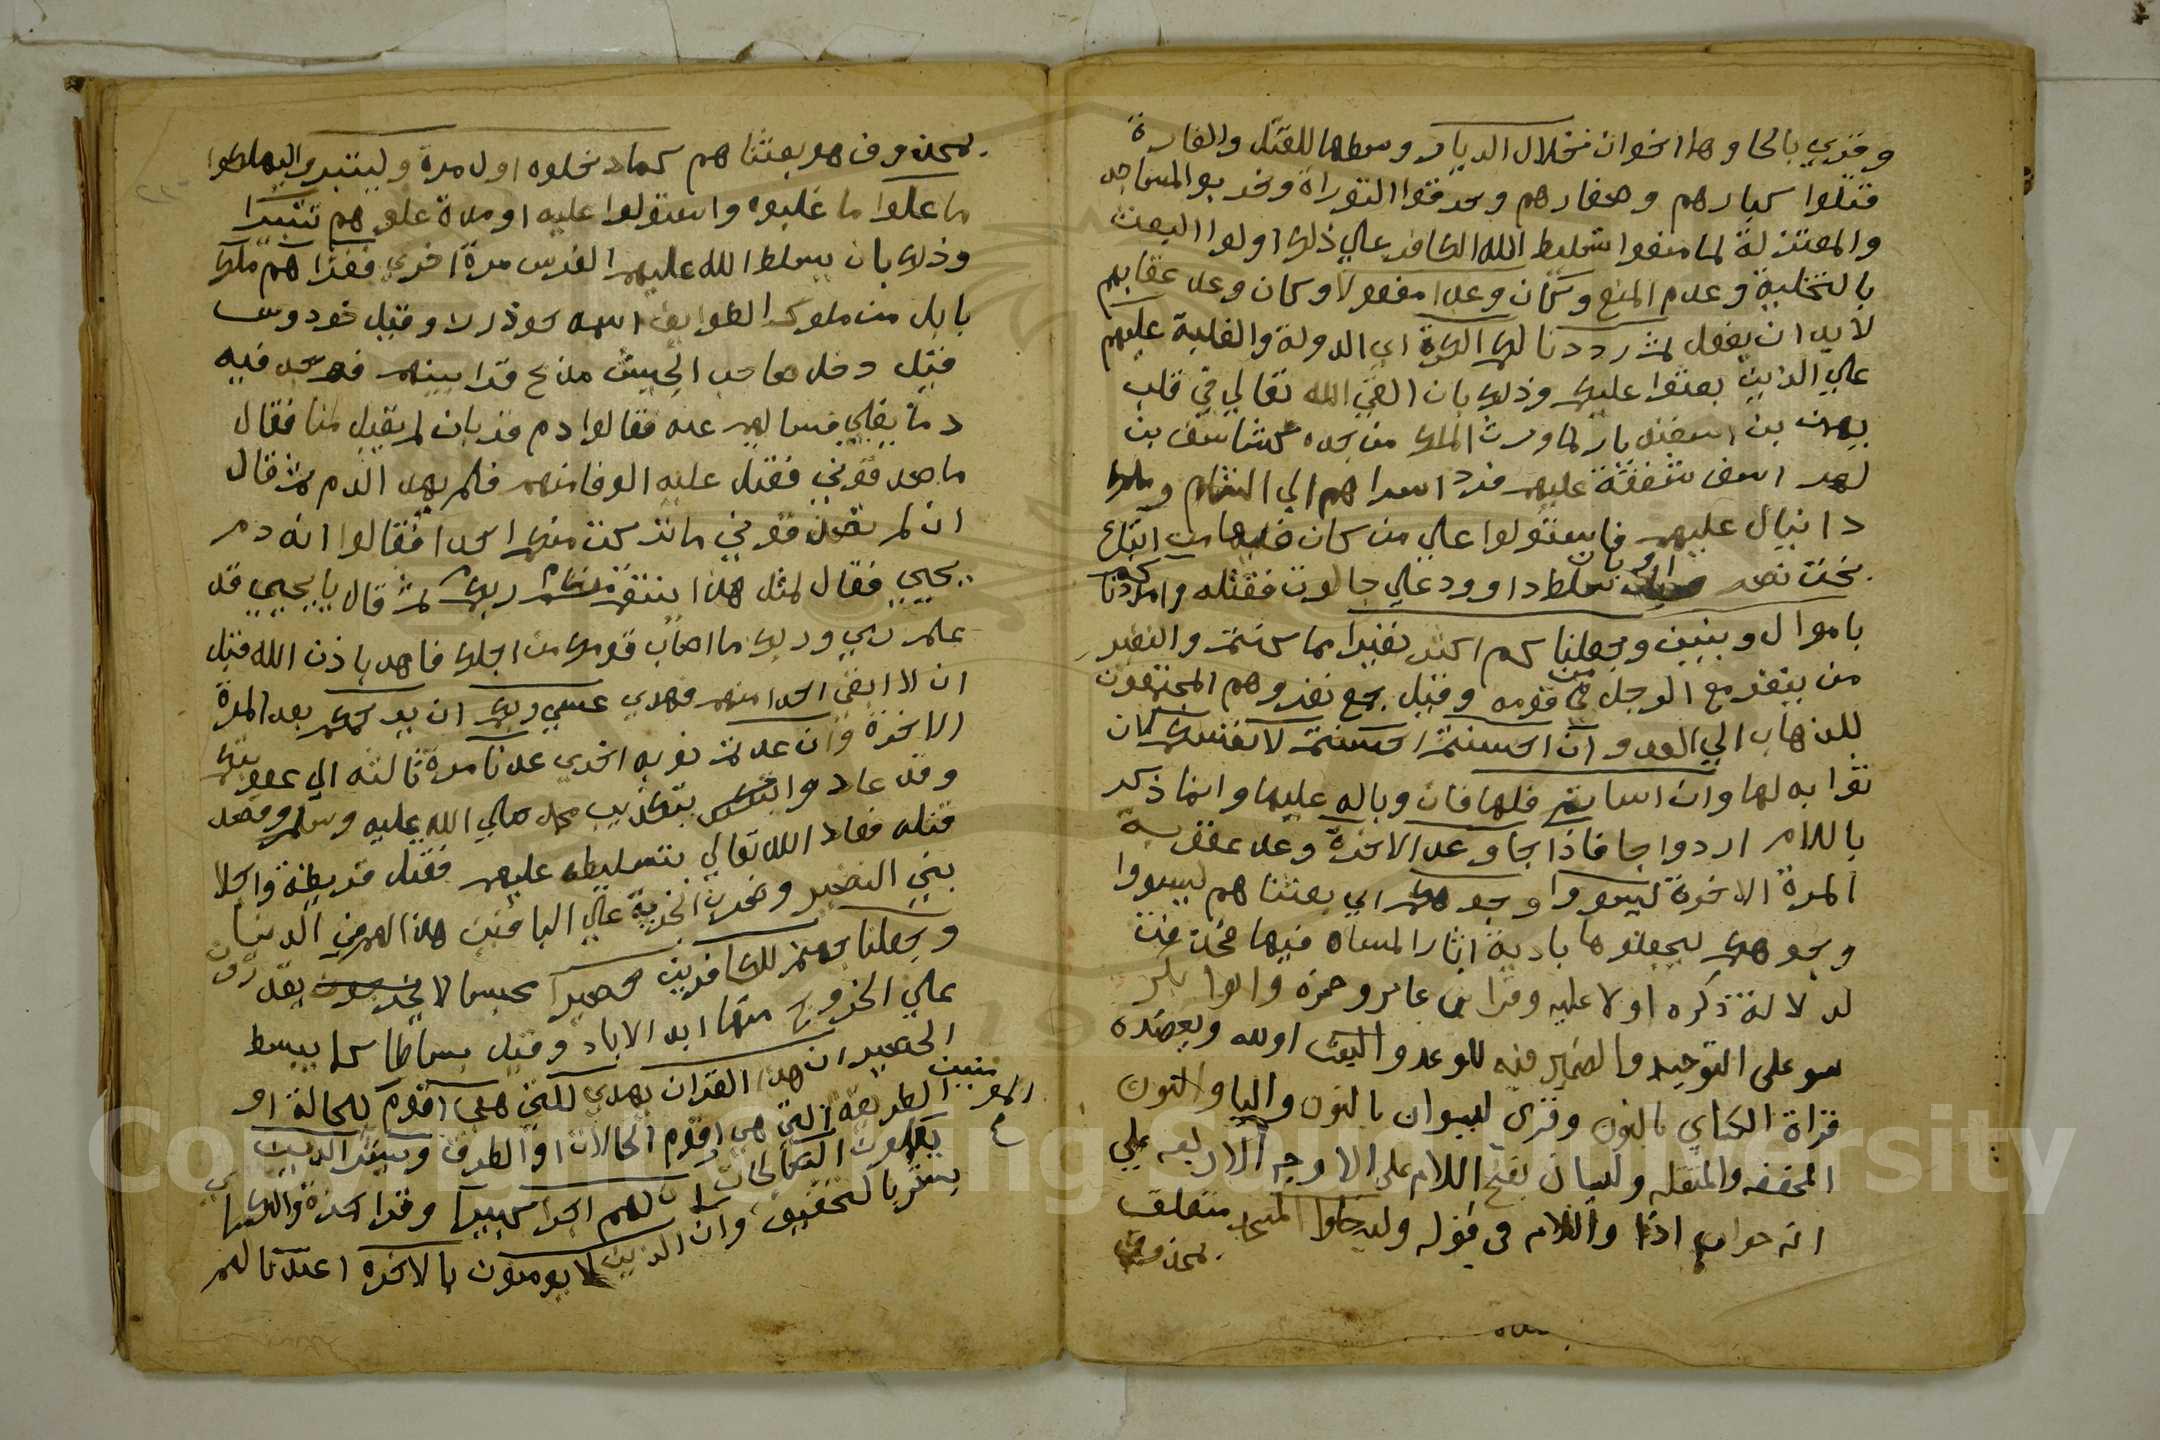 وقري بالحا وهما اخوان خلال الديار وسطها للقتل والغارة
قتلوا كبارهم وصغارهم وحرقوا التوراة وخربوا المساجد
والمعتزلة لما منعوا تسليط الله الكافر علي ذلك اولوا البعث
بالتخلية وعدم المنع وكان وعدا مفعولا وكان وعد عقابهم
لابد ان يفعل ثم رددنا لكم الكرة اي الدولة والغلبة عليهم
علي الذين بعثوا عليكم وذلك بان القي الله تعالي في قلب
بهمن بن اسفنديار لما ورث الملك من جده كشتاسف بن
لهراسف شفقة عليهم فرد اسراهم الي الشام وملك
دانيال عليهم فاستولوا علي من كان فيها من اتباع
بخت نصر او بان سلط داوود علي جالوت فقتله وامددناكم
باموال وبنين وجعلناكم اكثر نفيرا مما كنتم والنفير
من ينفر مع الرجل من قومه وقيل جمع نفر وهم المجتمعون
للذهاب الي العدو ان احسنتم احسنتم لانفسكم لان
ثوابه لها وان اساتم فلها فان وباله عليها وانما ذكر
باللام ازدواجا فاذا جا وعد الاخرة وعد عقوبة
المرة الاخرة ليسوءوا وجوهكم اي بعثناهم ليسووا
وجوهكم ليجعلوها بادية اثار المساه فيها فحذف
لدلالة ذكره اولا عليه وقرا ابن عامر وحمزه وابوا بكر
ليسو على التوحيد والضمير فيه للوعد او البعث او لله ويعضده
قراة الكساي بالنون وقرى ليسوان بالنون واليا والنون
المخففه والمثقله وليسان بفتح اللام على الاوجه الاربعه علي
انه جواب اذا واللام في قوله وليدخلوا المسجد متعلق
بمحذوف
بمحذوف هو بعثناهم كما دخلوه اول مرة وليتبروا ليهلكوا
ما علوا ما غلبوه واستولوا عليه او مدة علوهم تتبيرا
وذلك بان سلط الله عليهم الفرس مرة اخري فغزاهم ملك
بابل من ملوك الطوايف اسمه جوذرلا وقيل خردوس
قيل دخل صاحب الجيش مذبح قرابينهم فوجد فيه
دما يغلي فسالهم عنه فقالوا دم قربان لم يقبل منا فقال
ما صدقوني فقتل عليه الوفا منهم فلم يهد الدم ثم قال
ان لم تصدقوني ما تركت منكم احدا فقالوا انه دم
يحيي فقال لمثل هذا ينتقم منكم ربكم ثم قال يا يحيي قد
علم ربي وربك ما اصاب قومك من اجلك فاهد باذن الله قبل
ان لا ابقي احدا منهم فهدي عسي ربكم ان يرحمكم بعد المرة
الاخرة وان عدتم نوبه اخري عدنا مرة ثالثه الي عقوبتكم
وقد عادوا بتكذيب محمد صلي الله عليه وسلم وقصد
قتله فعاد الله تعالي بتسليطه عليهم فقتل قريظة واجلا
بني النضير وضرب الجزية علي الباقين هذا لهم في الدنيا
وجعلنا جهنم للكافرين حصيرا محبسا لا يقدرون
علي الخروج منها ابد الاباد وقيل بساطا كما يبسط
الحصير ان هذا القران يهدي للتي هي اقوم للحالة او
الطريقة التي هي اقوم الحالات او الطرق ويبشر المومنين الذين
يعملون الصالحات ان لهم اجرا كبيرا وقرا حمزة والكساي
يبشر بالتخفيف وان الذين لا يومنون بالاخره اعتدنا لهم
Copyright © King Saud University